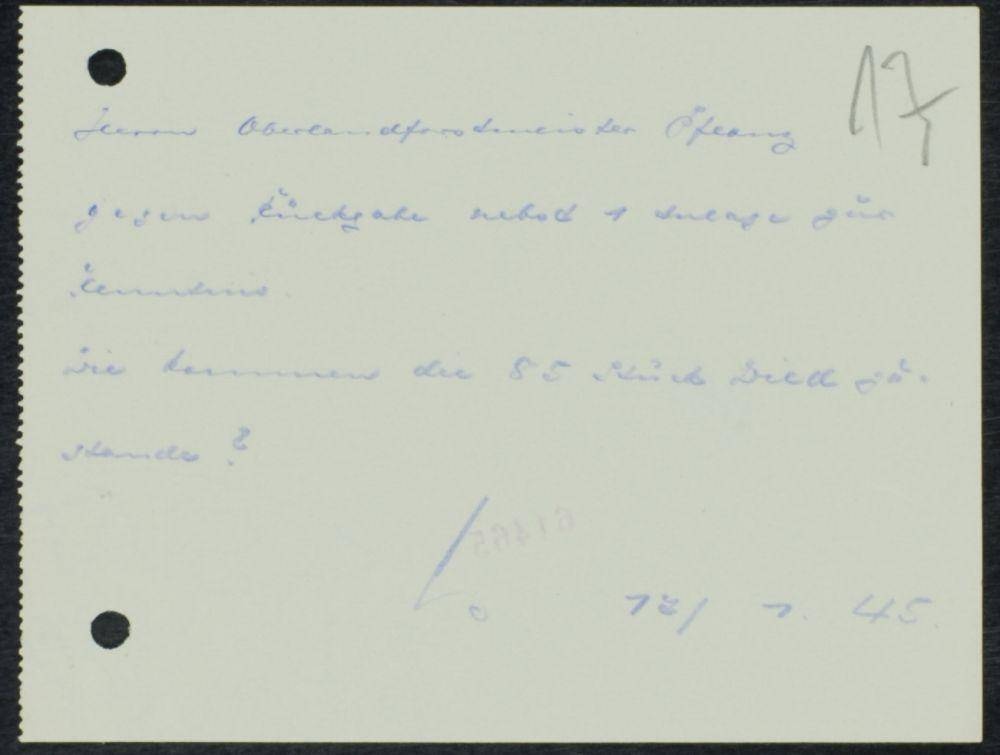 17
Herrn Oberlandforstmeister Pflanz
gegen Rückgabe nebst 1 Anlage zur
Kenntnis.
Wie kommen die 85 Stück Wild zu-
stande?
17/ 1. 45.